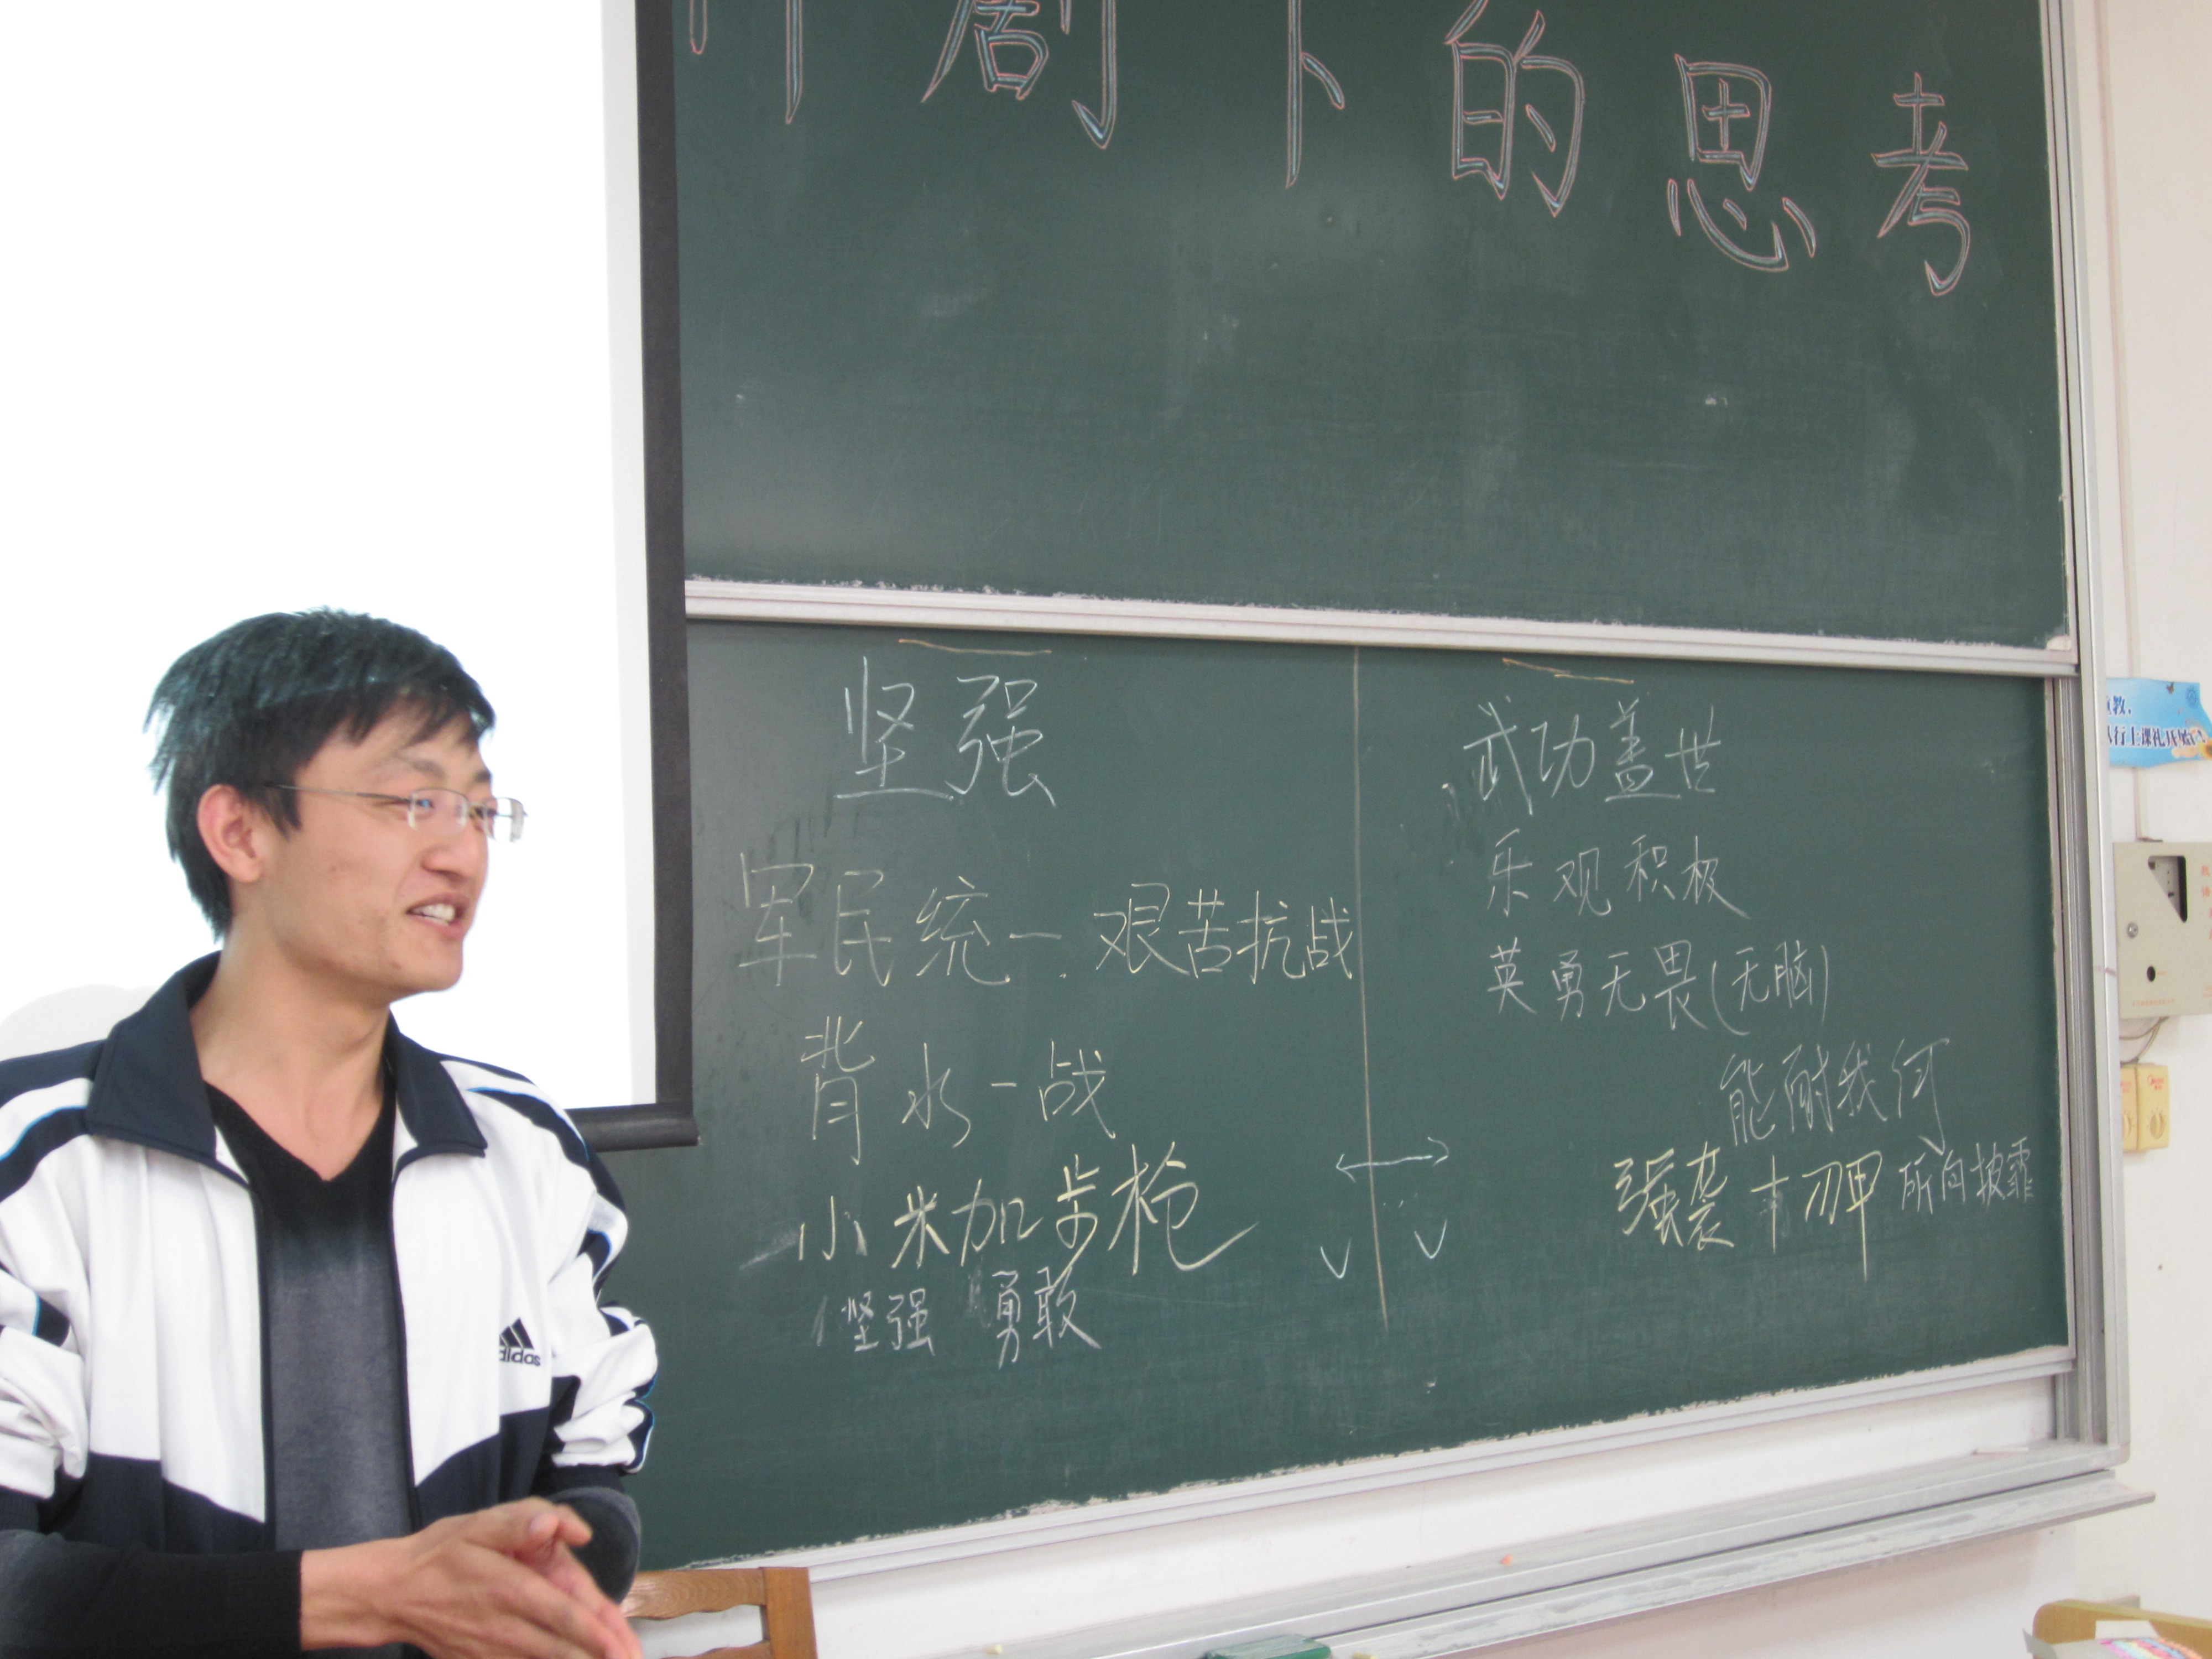 剧下的思考
坚强
军民统一.艰苦抗战
背水一战
小米加步枪
坚强 勇敢
武功盖世
乐观积极
英勇无畏(无脑)
能耐我何
强袭+刀甲 所向披靡
adidas